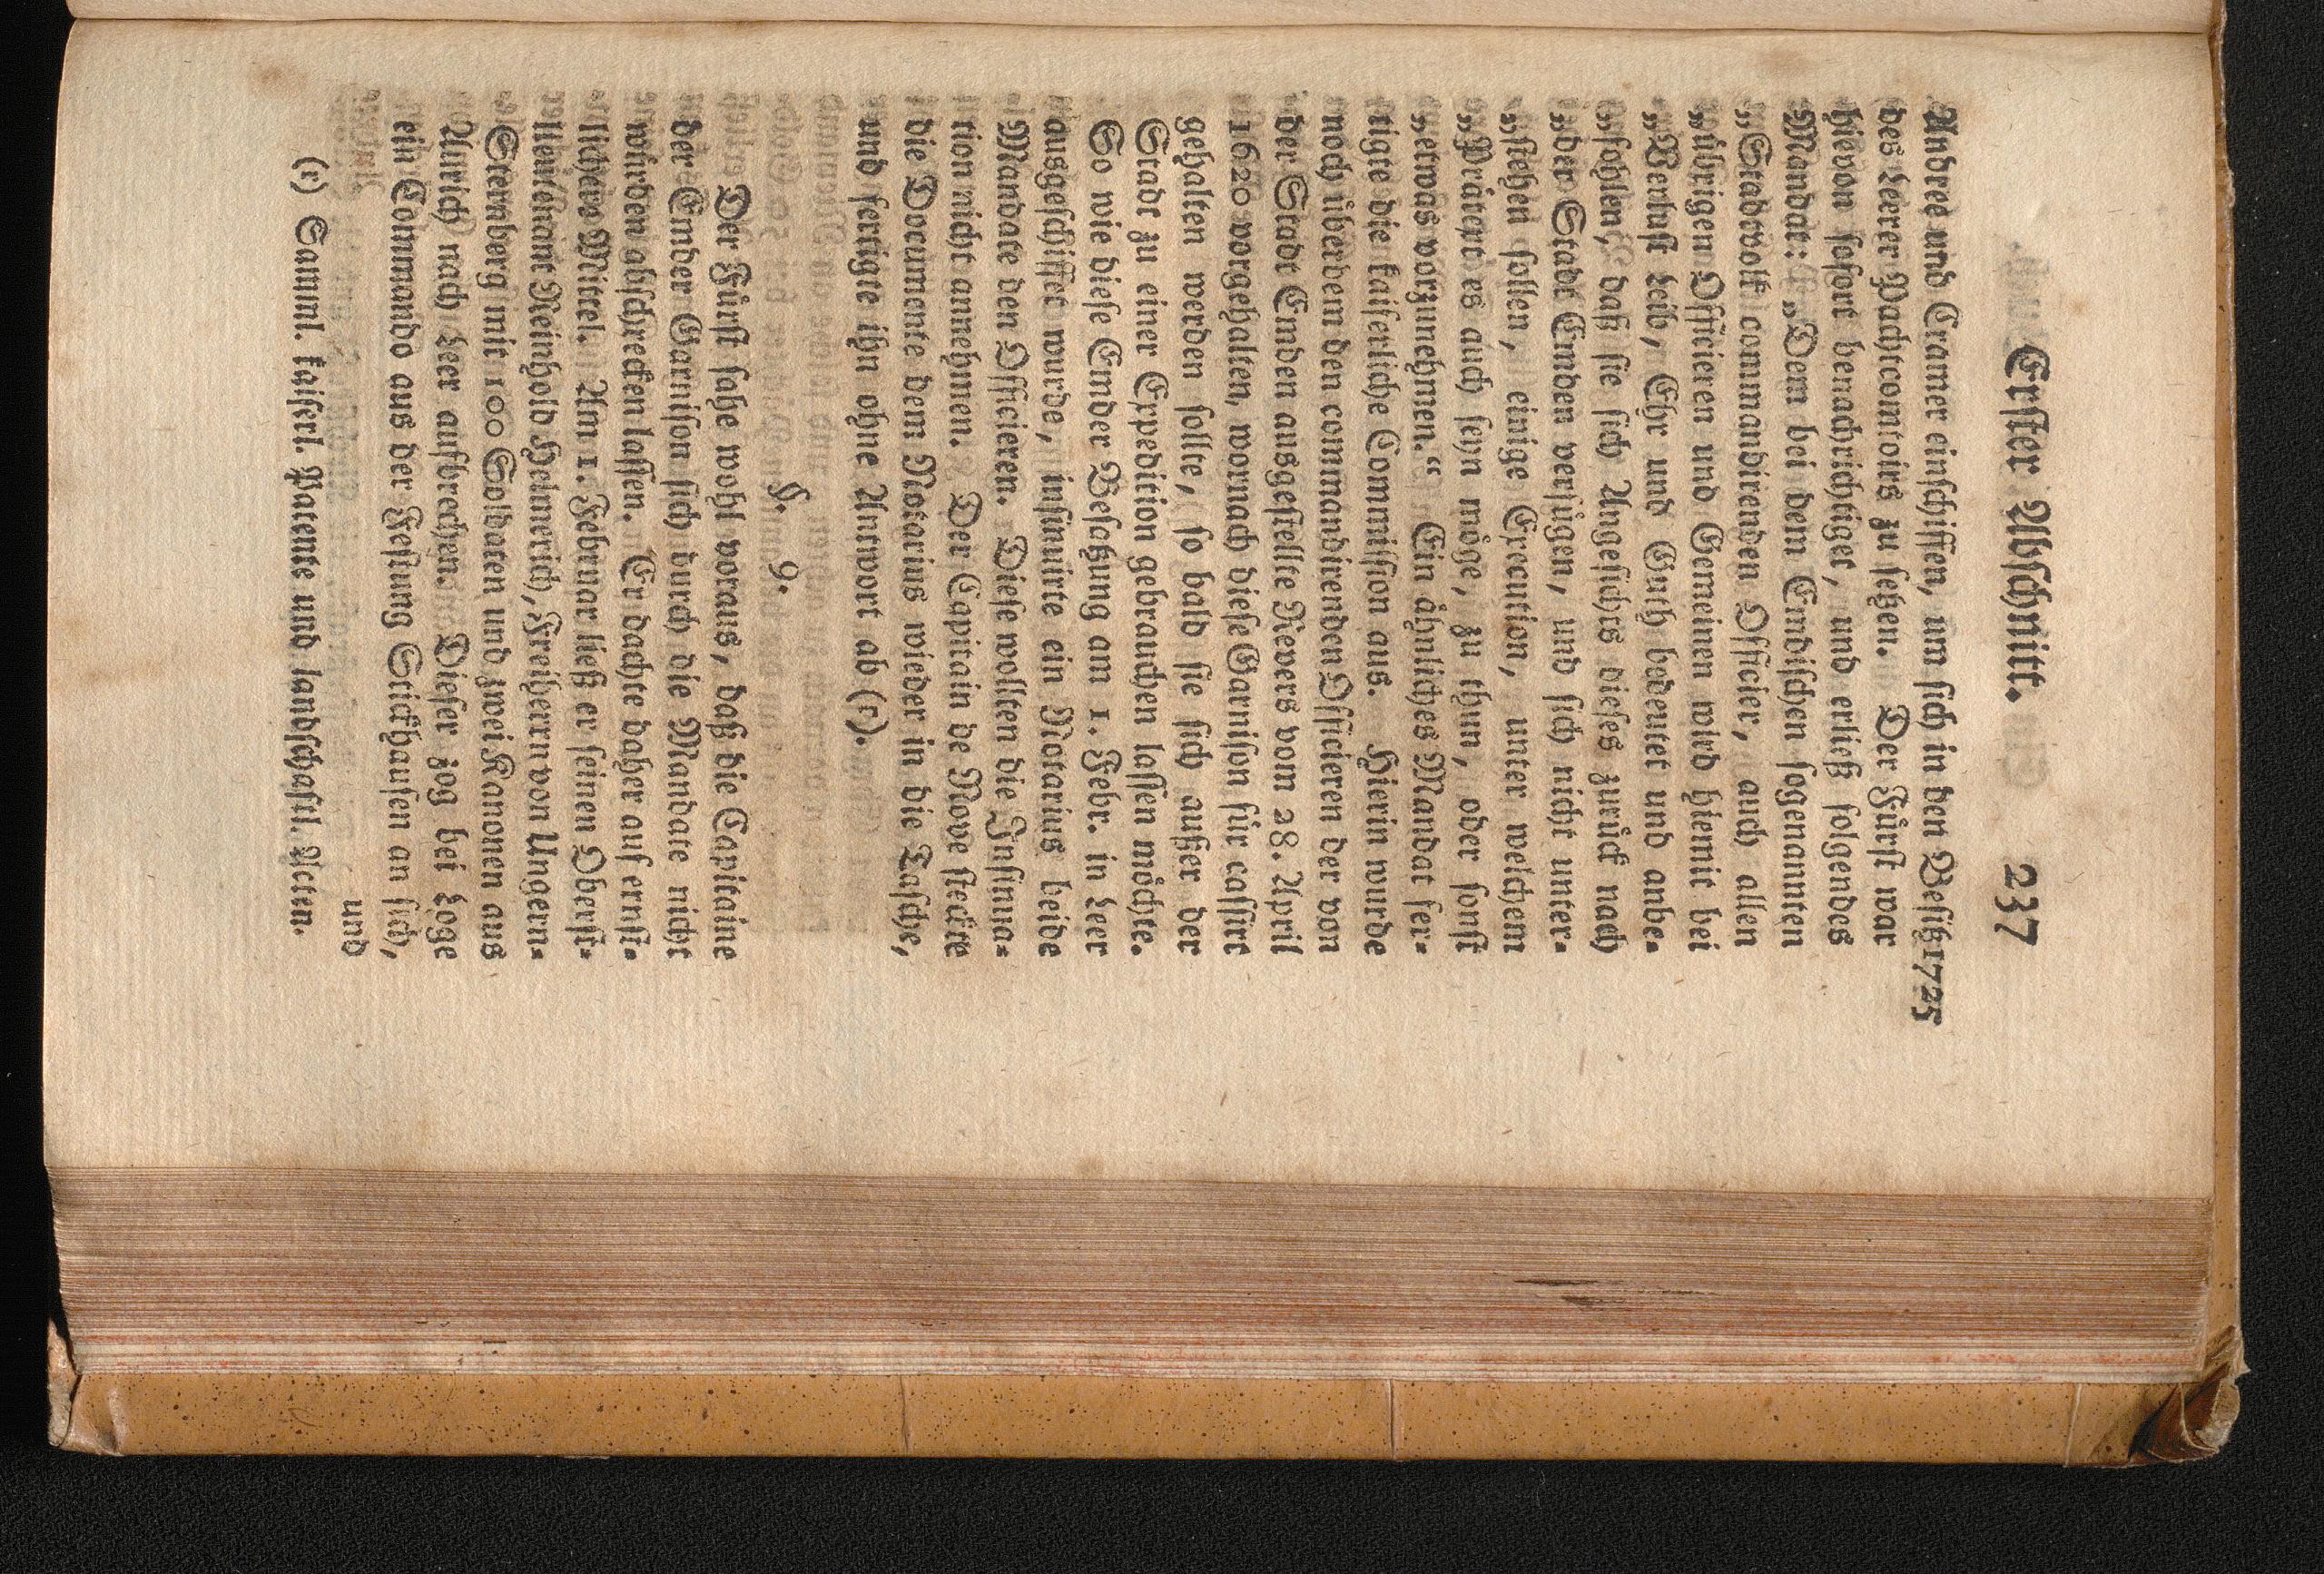 Erster Abschnitt. 237
Andree und Cramer einschiffen, um sich in den Besitz 1725
des Leerer Pachtcomtoirs zu setzen. Der Fürst war
hievon sofort benachrichtiget, und erließ folgendes
Mandat: „Dem bei dem Embdischen sogenannten
„Stadtvolk commandirenden Officier, auch allen
„übrigen Officieren und Gemeinen wird hiemit bei
„Verlust Leib, Ehr und Guth bedeutet und anbe-
„fohlen, daß sie sich Angesichts dieses zurück nach
„der Stadt Emden verfügen, und sich nicht unter-
„stehen sollen, einige Execution, unter welchem
„Prätext es auch seyn möge, zu thun, oder sonst
„etwas vorzunehmen.“ Ein ähnliches Mandat fer-
tigte die kaiserliche Commission aus. Hierin wurde
noch überdem den commandirenden Officieren der von
der Stadt Emden ausgestellte Revers vom 28. April
1620 vorgehalten, wornach diese Garnison für cassirt
gehalten werden sollte, so bald sie sich außer der
Stadt zu einer Expedition gebrauchen lassen möchte.
So wie diese Emder Besatzung am 1. Febr. in Leer
ausgeschiffet wurde, insinuirte ein Notarius beide
Mandate den Officieren. Diese wollten die Insinua-
tion nicht annehmen. Der Capitain de Move steckte
die Documente dem Notarius wieder in die Tasche,
und fertigte ihn ohne Antwort ab (r).
§. 9.
Der Fürst sahe wohl voraus, daß die Capitaine
der Emder Garnison sich durch die Mandate nicht
würden abschrecken lassen. Er dachte daher auf ernst-
lichere Mittel. Am 1. Februar ließ er seinen Oberst-
lieutenant Reinhold Helmerich, Freiherrn von Ungern-
Sternberg mit 100 Soldaten und zwei Kanonen aus
Aurich nach Leer aufbrechen. Dieser zog bei Loge
ein Commando aus der Festung Stickhausen an sich,
und
(r) Samml. kaiserl. Patente und landschaftl. Acten.